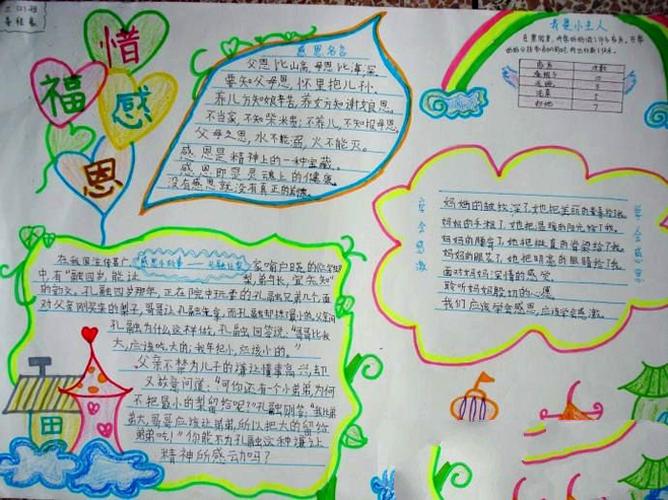 惜
福
感
恩
感恩名言
父恩比山高,母恩比海深。
要知父母恩,怀里抱儿孙。
养儿方知娘辛苦,养女方知谢娘恩。
不当家,不知柴米贵;不养儿,不知报母恩。
父母之恩,水不能溺,火不能灭。
感恩是精神上的一种宝藏。
感恩即是灵魂上的健康。
没有感恩就没有真正的美德。
我是小主人
次数
妈妈的皱纹深了,她把美丽的青春给了我。
妈妈的手粗了,她把温暖的阳光给了我。
妈妈的腰弯了,她把挺直的脊梁给了我。
妈妈的眼花了,她把明亮的眼睛给了我。
面对妈妈深情的感受
聆听妈妈殷切的心愿
我们应该学会感恩,应该学会感激。
学会感激
学会感恩
感恩小故事——孔融让梨
在我国流传着广
家喻户晓的
中有“融四岁,能让梨,弟于长,宜先知”
的
孔融四岁那年,正在院中玩耍的孔融兄弟几个,面
对父亲刚买来的梨子,哥哥让孔融先拿,而孔融却挑最小的,父亲问
孔融为什么这样做,孔融回答说:“哥哥比我
大,应该吃大的;我年纪小,应该小的。”
父亲不禁为儿子的谦让懂事高兴,却
又故意问道:“可你还有一个小弟弟,为何
不把最小的梨留给呢?”孔融则答:“我比弟
弟大,哥哥应该让弟弟,所以把大的留给
弟弟吃!”你能不为孔融这种谦让
精神所感动吗?